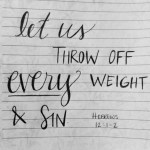 let us
THROW OFF
every WEIGHT
& SIN
HEBREWS
12:1-2